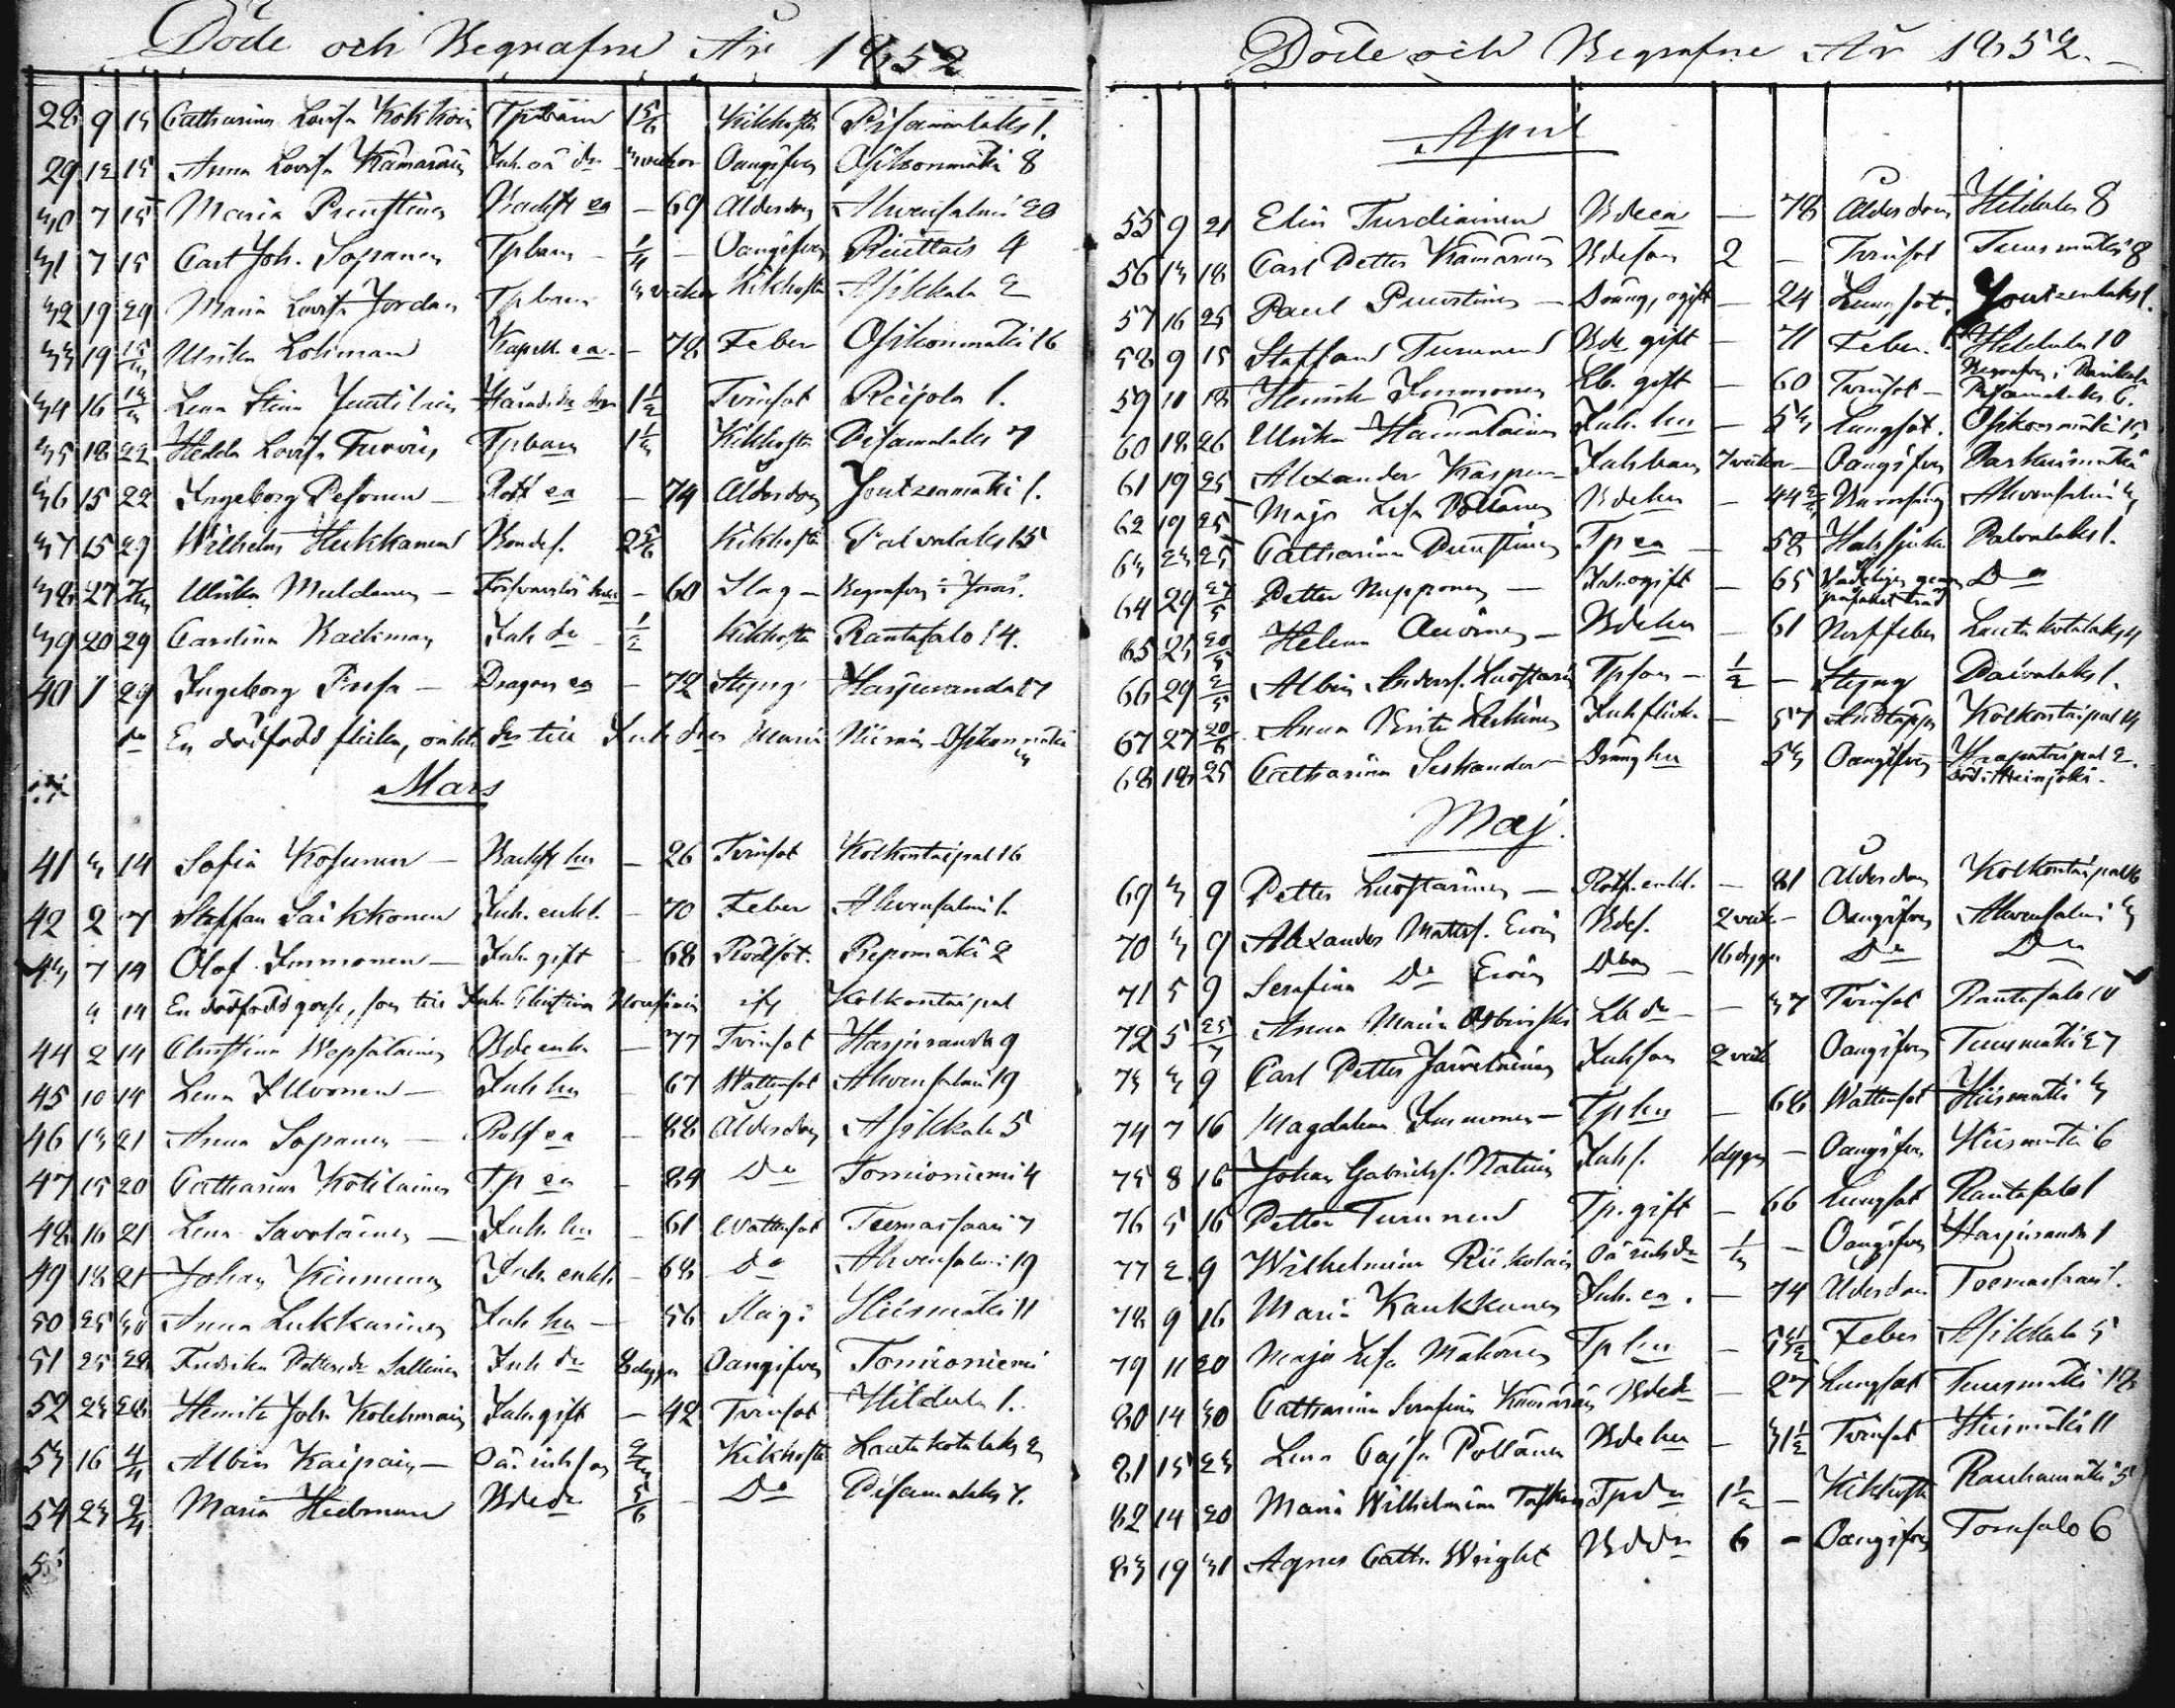 Döde och Begrafne År 1852
28 9 15 Catharina Lovisa Kokkoin Tpbarn 1 5/6 Kikhosta Pisamalaks 1.
29 13 15 Anna Lovisa Kämäräin Inh. oä dr 3 veckor Oangifven Ofikonmäki 8
30 7 15 Maria Puustinen Backst ea - 69 Ålderdom Ahvensalmi 20
31 7 15 Carl Joh. Sopanen Tpbarn - 1/4 - Oangifven Riuttais 4
32 19 29 Maria Lovisa Jordan Tpbarn 3 veckor Kikhosta Asikkala 2
33 19 15/3 Ulrika Lohman Kapell. ea - 78 Feber Ofikonmäki 16
34 16 14/3 Lena Stina Juutilain 1 1/2 Tvinsot Reijola 1.
35 18 22 Hedda Lovisa Turvin Tpbarn 1 1/3 Kikhosta Pisamalaks 7
36 15 22 Ingeborg Pesonen - Rotf ea - 74 Ålderdom Joutzenmäki 1.
37 15 29 Wilhelm Hukkanen Bondes. 2 5/6 Kikhosta Palvalaks 15
38 27 7/3 Ulrika Muldanen - Försvarslös hu - 60 Slag - Begrafven i Jorois.
39 20 29 Carolina Backman Inh dr - 1/2 Kikhosta Rantasalo 14.
40 1 29 Ingeborg - Dragon ea - 72 Styng Harjuranda 17
do En dödfödd flicka, oäkta dr till Inh drn Maria Ofikonmäki 3
Mars
41 3 14 Sofia Kosunen - Backst hu - 26 Tvinsot Kolkontaipal 16
42 2 7 Staffan Saikkonen Inh. enkl. - 70 Feber Ahvensalmi 1.
43 7 14 Olof Immonen - Inh gift - 68 Rödsot. Repomäki 2
4 14 En dödfödd gosse, son till Inh Christina Kolkontaipal
44 2 14 Christina Wepsäläinen Bde enka - 77 Tvinsot Harjuranda 9
45 10 14 Lena Ilvonen - Inh hu - 67 Wattusot Ahvensalmi 19
46 13 21 Anna Sopanen - Rotf ea - 88 Ålderdom Asikkala 5
47 15 20 Catharina Kotilainen Tp ea - 84 Do Tornioniemi 4
48 16 21 Lena Savolainen - Inh. hu - 61 Wattusot Teemassaari 7
49 18 21 Johan Kinnunen Inh enkl. - 68 Do Ahvensalmi 19
50 25 30 Anna Lukkarinen Inh hu - 56 Slag Hiismäki 11
51 25 28 Fredrika Pettersdr Sallinen Inh dr 8 dygn Oangifven Tornioniemi
52 23 28 Henrik Joh. Kolehmain Inh gift - 42 Tvinsot Hildula 1.
53 16 4/4 Albin Kaipain - Oä inh son 2/3 Kikhosta Lautakotalaks 2
54 23 2/4 Maria Hedman Bde dr 5/6 - Do Pisamalaks 7.
Döde och Begrafne År 1852. -
April
55 9 21 Elin Turdiainen Bde ea - 78 Ålderdom Hildula 8
56 13 18 Carl Petter Kämäräin Bdeson 2 - Tvinsot Tuusmäki 8
57 16 25 Paul Puustinen - Dräng, ogift - 24 Lungsot. Joutzenlaks 1.
58 9 15 Staffan Turunen Bde gift - 71 Feber. Hildula 10
59 11 18 Henrik Immonen Lb. gift - 60 Tvinsot - Begrafven i Pisamalaks 6.
60 18 26 Ulrika Hämäläinen Inh. hu - 53 Lungsot. Ofikonmäki 15
61 19 25 Alexander Kaipain Inh barn 7 veckor - Oangifven Parkuinmäki
62 19 25 Maja Lisa Pöllänen Bde hu - 44 2/3 Barnsäng Ahvensalmi 3
63 23 25 Catharina Puustinen Tp ea - 58 Halssjuka Palvalaks 1.
64 29 27/5 Petter Nupponen - Inh. ogift - 65 Do
65 25 20/5 Helena Auvinen - Bde hu - 61 Nerffeber Lautakotalaks 4
66 29 2/5 Albin Anderss. Luostarin Tpson - 1/2 - Styng Paivalaks 1.
67 27 20/6 Anna Brita Leskinen Inh flick. - 57 Andtäppa Kolkontaipal 14
68 18 25 Catharina Seskander Dräng hu 53 Oangifven Haapataipal 2. död i Heinjoki.
Maj.
69 3 9 Petter Luostarinen - Rotf. enkl. - 81 Ålderdom Kolkontaipal 16
70 3 9 Alexander Matts. Eroin Bdes. 2 veck - Oangifven Ahvensalmi 3
71 5 9 Serafina Do Eroin Dbarn - 16 dygn Do Do
72 5 25/7 Anna Maria Lb dr - - 37 Tvinsot Rantasalo 10
73 3 9 Carl Petter Järveläinen Inhson 2 veck Oangifven Tuusmäki 27
74 7 16 Magdalena Immonen - Tp hu - 68 Wattusot Hiismäki 3
75 8 16 Johan Gabrielss. Natunen Inh s. 1 dygn - Oangifven Hiismäki 6
76 5 16 Petter Turunen Tp. gift - 66 Lungsot Rantasalo 1
77 2 9 Wilhelmina Riikolain Oä inh dr 1/3 - Oangifven Harjuranda 1
78 9 16 Maria Kaukkunen Inh. ea. - 74 Ålderdom Teemassaari 1.
79 11 20 Maja Lisa Mähönen Tp hu - 53 1/2 Feber Asikkala 5
80 14 30 Catharina Serafina Kämäräin Bde dr - 27 Lungsot Tuusmäki 18
81 15 23 Lena Cajsa Pöllänen Bde hu - 31 1/2 Tvinsot Hiismäki 11
82 14 20 Maria Wilhelmina Tp dr 1 1/2 - Kikhosta Rauhamäki 5
83 19 31 Agnes Cath. Wright Bd dr 6 - Oangifven Tornsalo 6